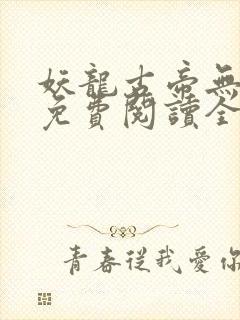 妖龍古帝無
免費閱讀全
青春從我愛你